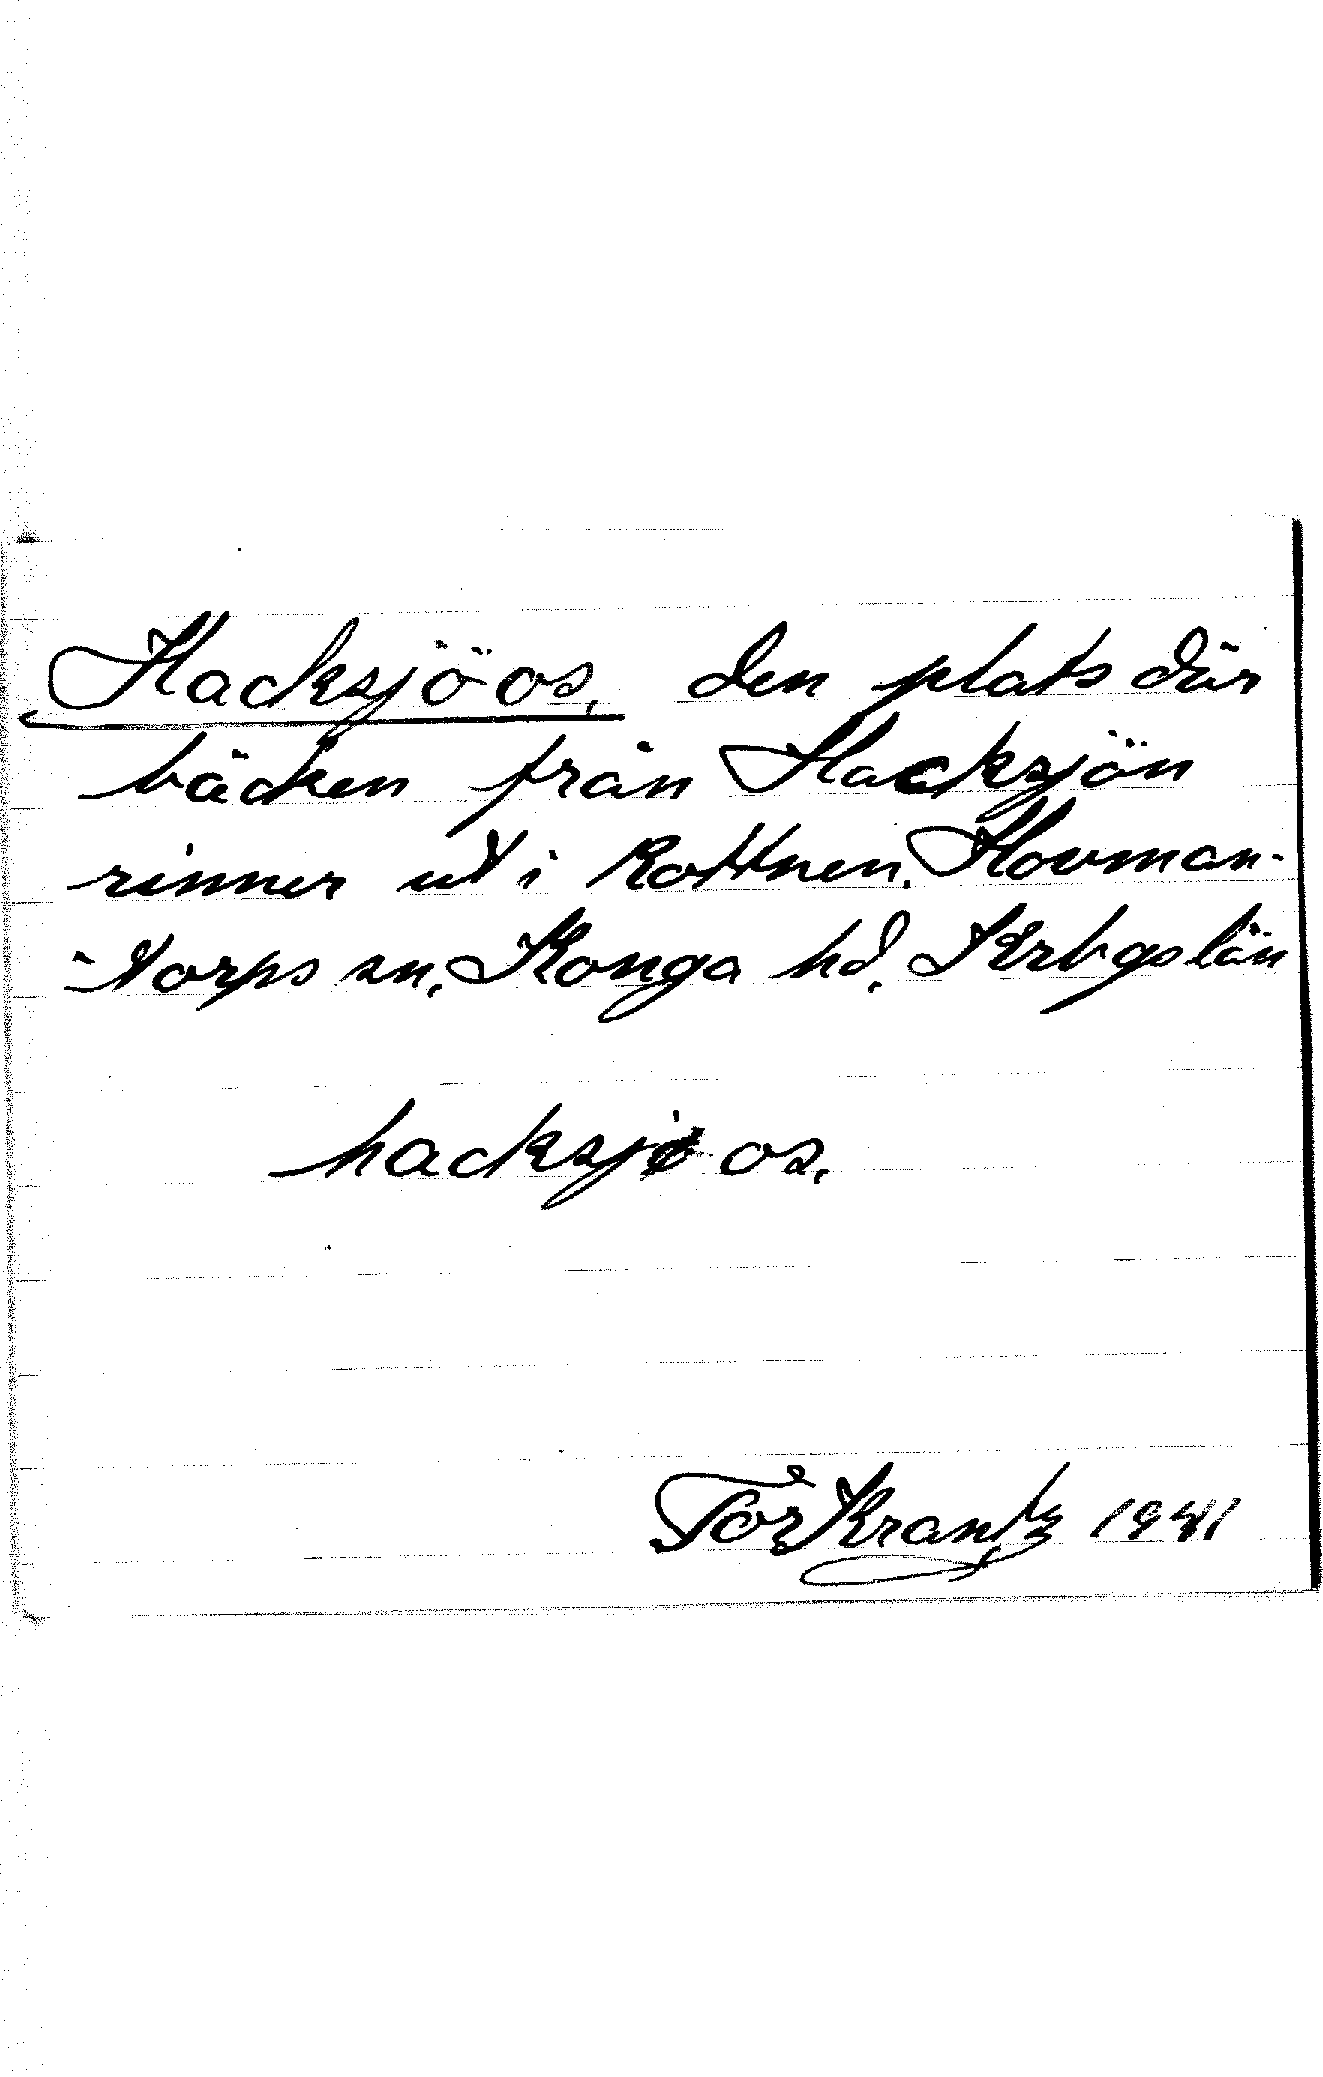 Hacksjöos, den plats där
bäcken från Hacksjön
rinner ut i Rottnen. Hovman-
-torps sn, Konga hd, Krbgslän
hacksjö os.
Tor Krantz 1941